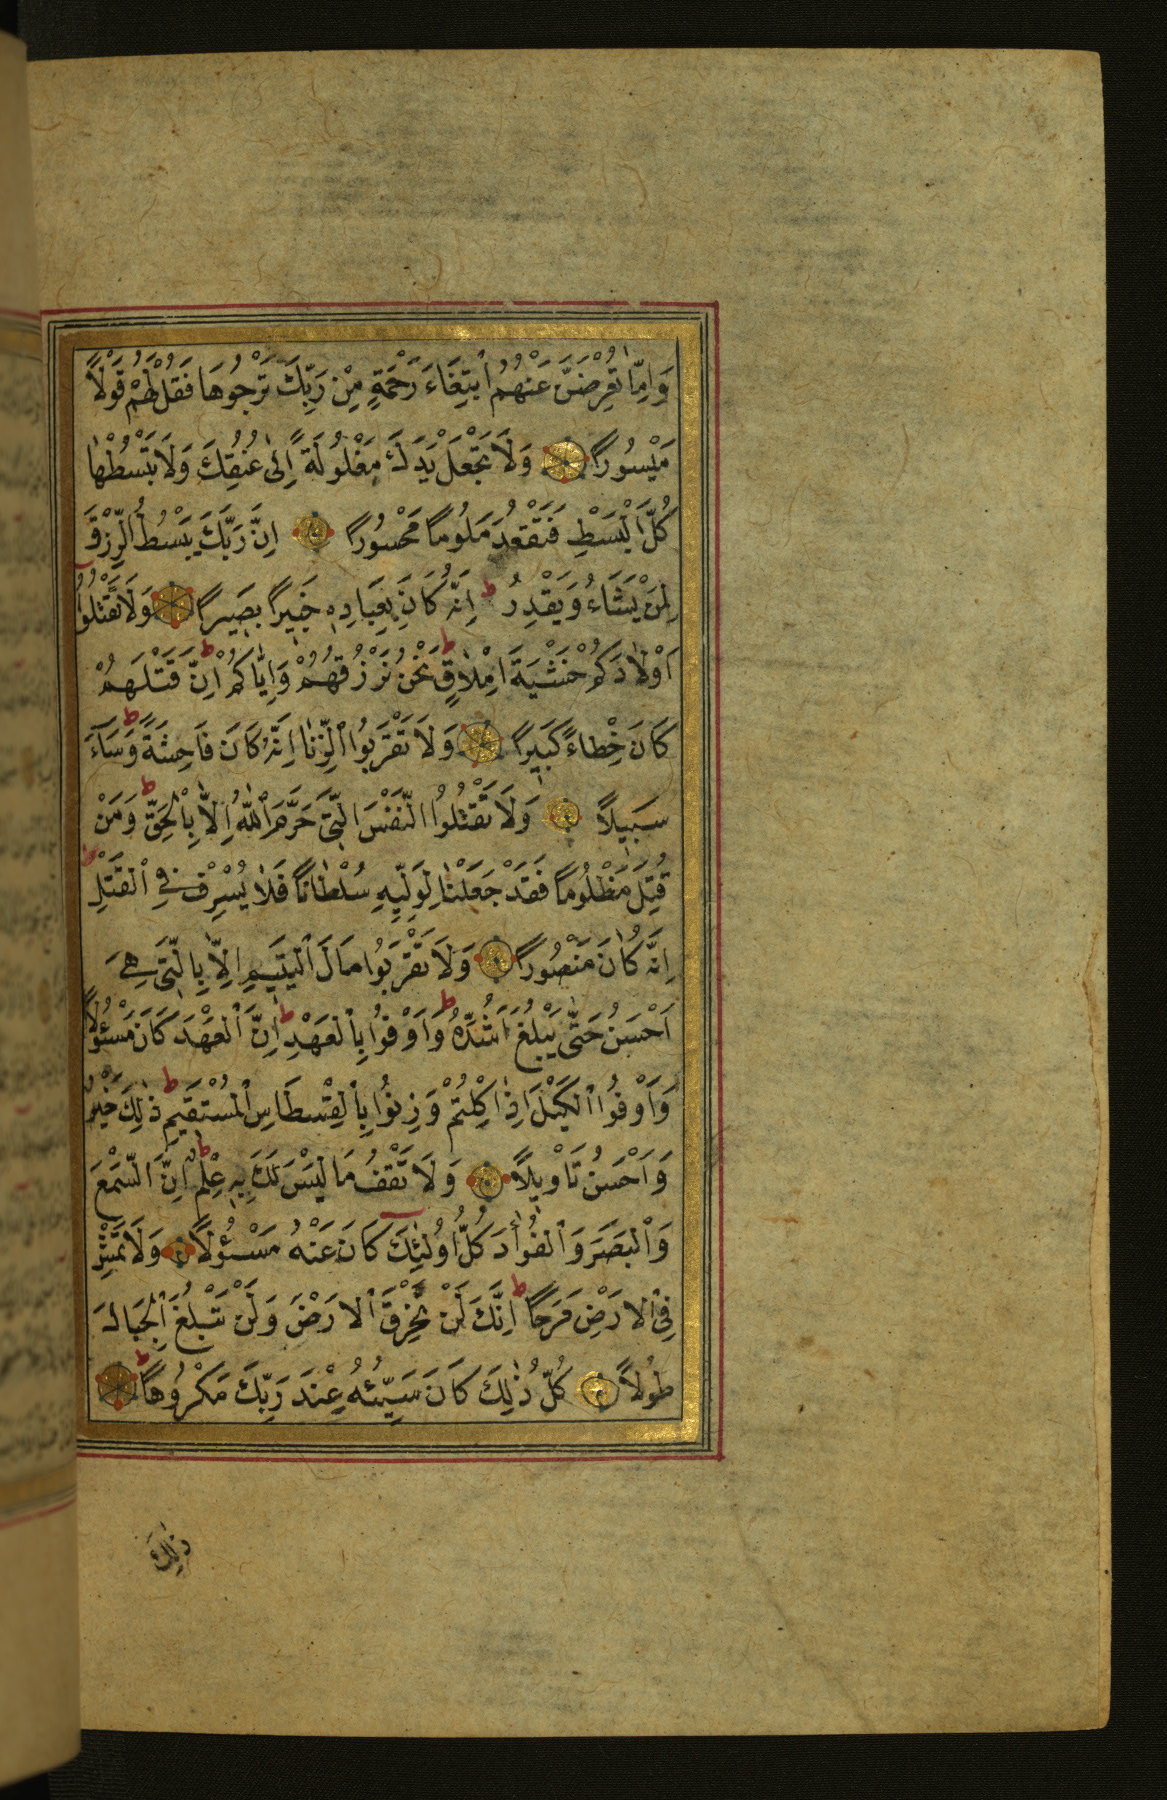 وَاِمَّا تُعْرِضَنَّ عَنْهُمُ ٱبْتِغَاءَ رَحْمَةٍ مِنْ رَبِّكَ تَرْجُوهَا فَقُلْ لَهُمْ قَوْلاً
مَيْسُورًا وَلَا تَجْعَلْ يَدَكَ مَغْلُولَةً اِلٰى عُنُقِكَ وَلَا تَبْسُطْهَا
كُلَّ ٱلْبَسْطِ فَتَقْعُدَ مَلُومًا مَحْسُورًا اِنَّ رَبَّكَ يَبْسُطُ الرِّزْقَ
لِمَنْ يَشَاءُ وَيَقْدِرُ ط اِنَّهُ كَانَ بِعِبَادِهِ خَبِيرًا بَصِيرًا وَلَا تَقْتُلُوا
اَوْلَادَكُمْ خَشْيَةَ اِمْلَاقٍ ط نَحْنُ نَرْزُقُهُمْ وَاِيَّاكُمْ ط اِنَّ قَتْلَهُمْ
كَانَ خِطْاءً كَبِيرًا وَلَا تَقْرَبُوا ٱلزِّنٰا اِنَّهُ كَانَ فَاحِشَةً ط وَسَاءَ
سَبِيلاً وَلَا تَقْتُلُوا النَّفْسَ الَّتِي حَرَّمَ ٱللّٰهُ اِلاَّ بِالْحَقِّ ط وَمَنْ
قُتِلَ مَظْلُومًا فَقَدْ جَعَلْنَا لِوَلِيِّهِ سُلْطَانًا فَلَا يُسْرِفْ فِي ٱلْقَتْلِ ط
اِنَّهُ كَانَ مَنْصُورًا وَلَا تَقْرَبُوا مَالَ ٱلْيَتِيمِ اِلاَّ بِالَّتِي هِيَ
اَحْسَنُ حَتّٰى يَبْلُغَ اَشُدَّهُ ط وَاَوْفُوا بِٱلْعَهْدِ ط اِنَّ ٱلْعَهْدَ كَانَ مَسْئُولاً
وَاَوْفُوا ٱلْكَيْلَ اِذَا كِلْتُمْ وَزِنُوا بِٱلْقِسْطَاسِ ٱلْمُسْتَقِيمِ ط ذٰلِكَ خَيْرٌ
وَاَحْسَنُ تَاْوِيلاً وَلَا تَقْفُ مَا لَيْسَ لَكَ بِهِ عِلْمٌ ط اِنَّ السَّمْعَ
وَٱلْبَصَرَ وَٱلْفُؤَادَ كُلُّ اُولٰئِكَ كَانَ عَنْهُ مَسْئُولاً وَلَا تَمْشِ
فِي ٱلْاَرْضِ مَرَحًا ط اِنَّكَ لَنْ تَخْرِقَ ٱلْاَرْضَ وَلَنْ تَبْلُغَ ٱلْجِبَالَ
طُولاً كُلُّ ذٰلِكَ كَانَ سَيِّئُهُ عِنْدَ رَبِّكَ مَكْرُوهًا ط
ذٰلِكَ